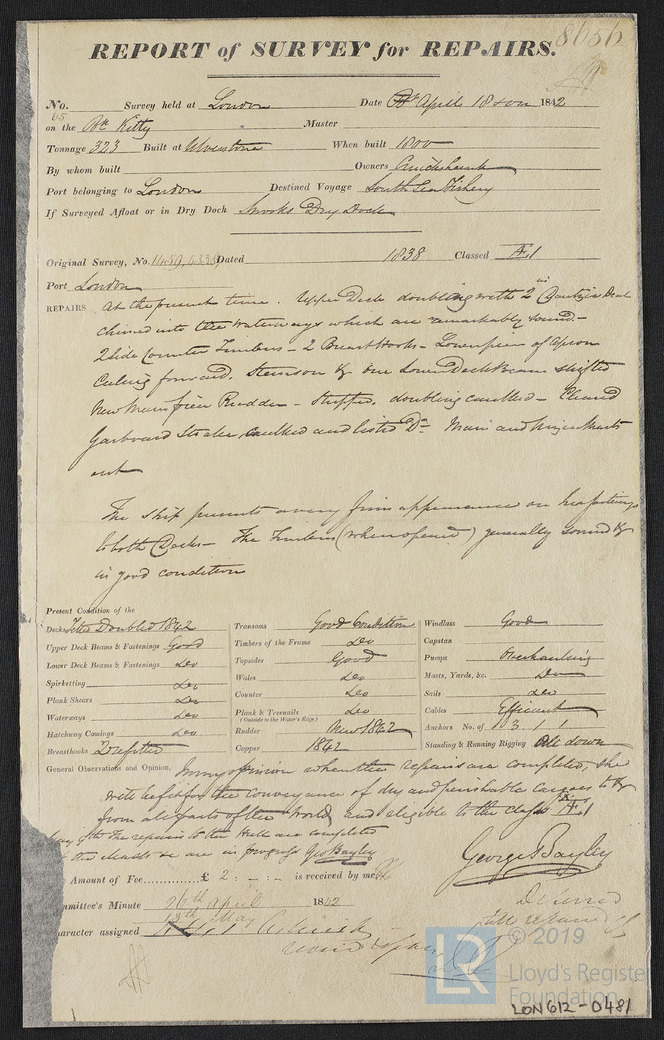 8656
REPORT of SURVEY for REPAIRS.
No. 65 Survey held at London Date April 18 1842
on the Bk Kitty Master
Tonnage 323 Built at Ulverstone When built 1800
By whom built Owners
Port belonging to London Destined Voyage South Sea Fishery
If Surveyed Afloat or in Dry Dock Dry Dock
Original Survey, No. Dated 1838 Classed Æ1
Port London
REPAIRS At the present time. Upper Deck doubling with 2 in Dantzic Deal
chined into the Waterways which are remarkably sound –
2 Side Counter Timbers – 2 Breasthooks – Lower piece of Apron
Ceiling forward, Stemson & one Lower Deck Beam shifted
New Main piece Rudder – Stripped, doubling caulked – Cleaned
Garboard Strakes, caulked and listed Do – Main and Mizen Masts
out
The Ship presents a very firm appearance on her fastenings
to both Decks – The Timbers (when opened) generally sound &
in good condition
Present Condition of the
Decks Doubled 1842
Upper Deck Beams & Fastenings Good
Lower Deck Beams & Fastenings Do
Spirketting Do
Plank Shears Do
Waterways Do
Hatchway Comings Do
Breasthooks
Transoms Good Condition
Timbers of the Frame Do
Topsides Good
Wales Do
Counter Do
Plank & Treenails Do
(Outside to the Water's Edge)
Rudder New 1842
Copper 1842
Windlass Good
Capstan
Pumps Overhauling
Masts, Yards, &c. Do
Sails Do
Cables Efficient
Anchors No. of 3 . 1 . 1
Standing & Running Rigging All down
General Observations and Opinion, In my opinion when the repairs are completed, she
will be fit for the conveyance of dry and perishable cargoes to &
from all parts of the World, and eligible to the class Æ1
The repairs to the Hull are completed
are in progress Geo Bayley
George Bayley
Amount of Fee............ £ 2 : – : – is received by me
mmittee's Minute 26th April 1842
13th May
aracter assigned
Deferred
till repaired
LR
© 2019
Lloyd's Register
Foundation
LON 612-0481